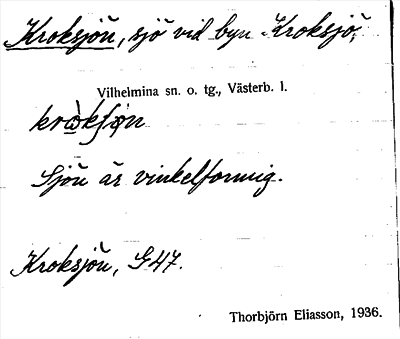 Kroksjön, sjö vid byn Kroksjö,
Vilhelmina sn. o. tg., Västerb. l.
Sjön är vinkelformig.
Kroksjön, G 47.
Thorbjörn Eliasson, 1936.